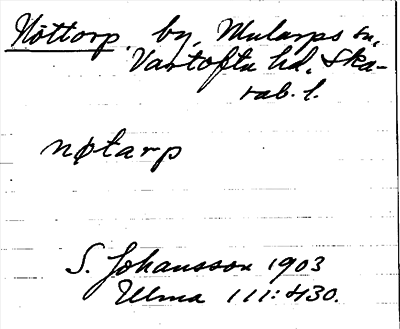 Nöttorp, by, Mularps sn,
Vartofta hd, Ska-
rab. l.
nøtarp
S. Johansson 1903
Ulma 111:430.